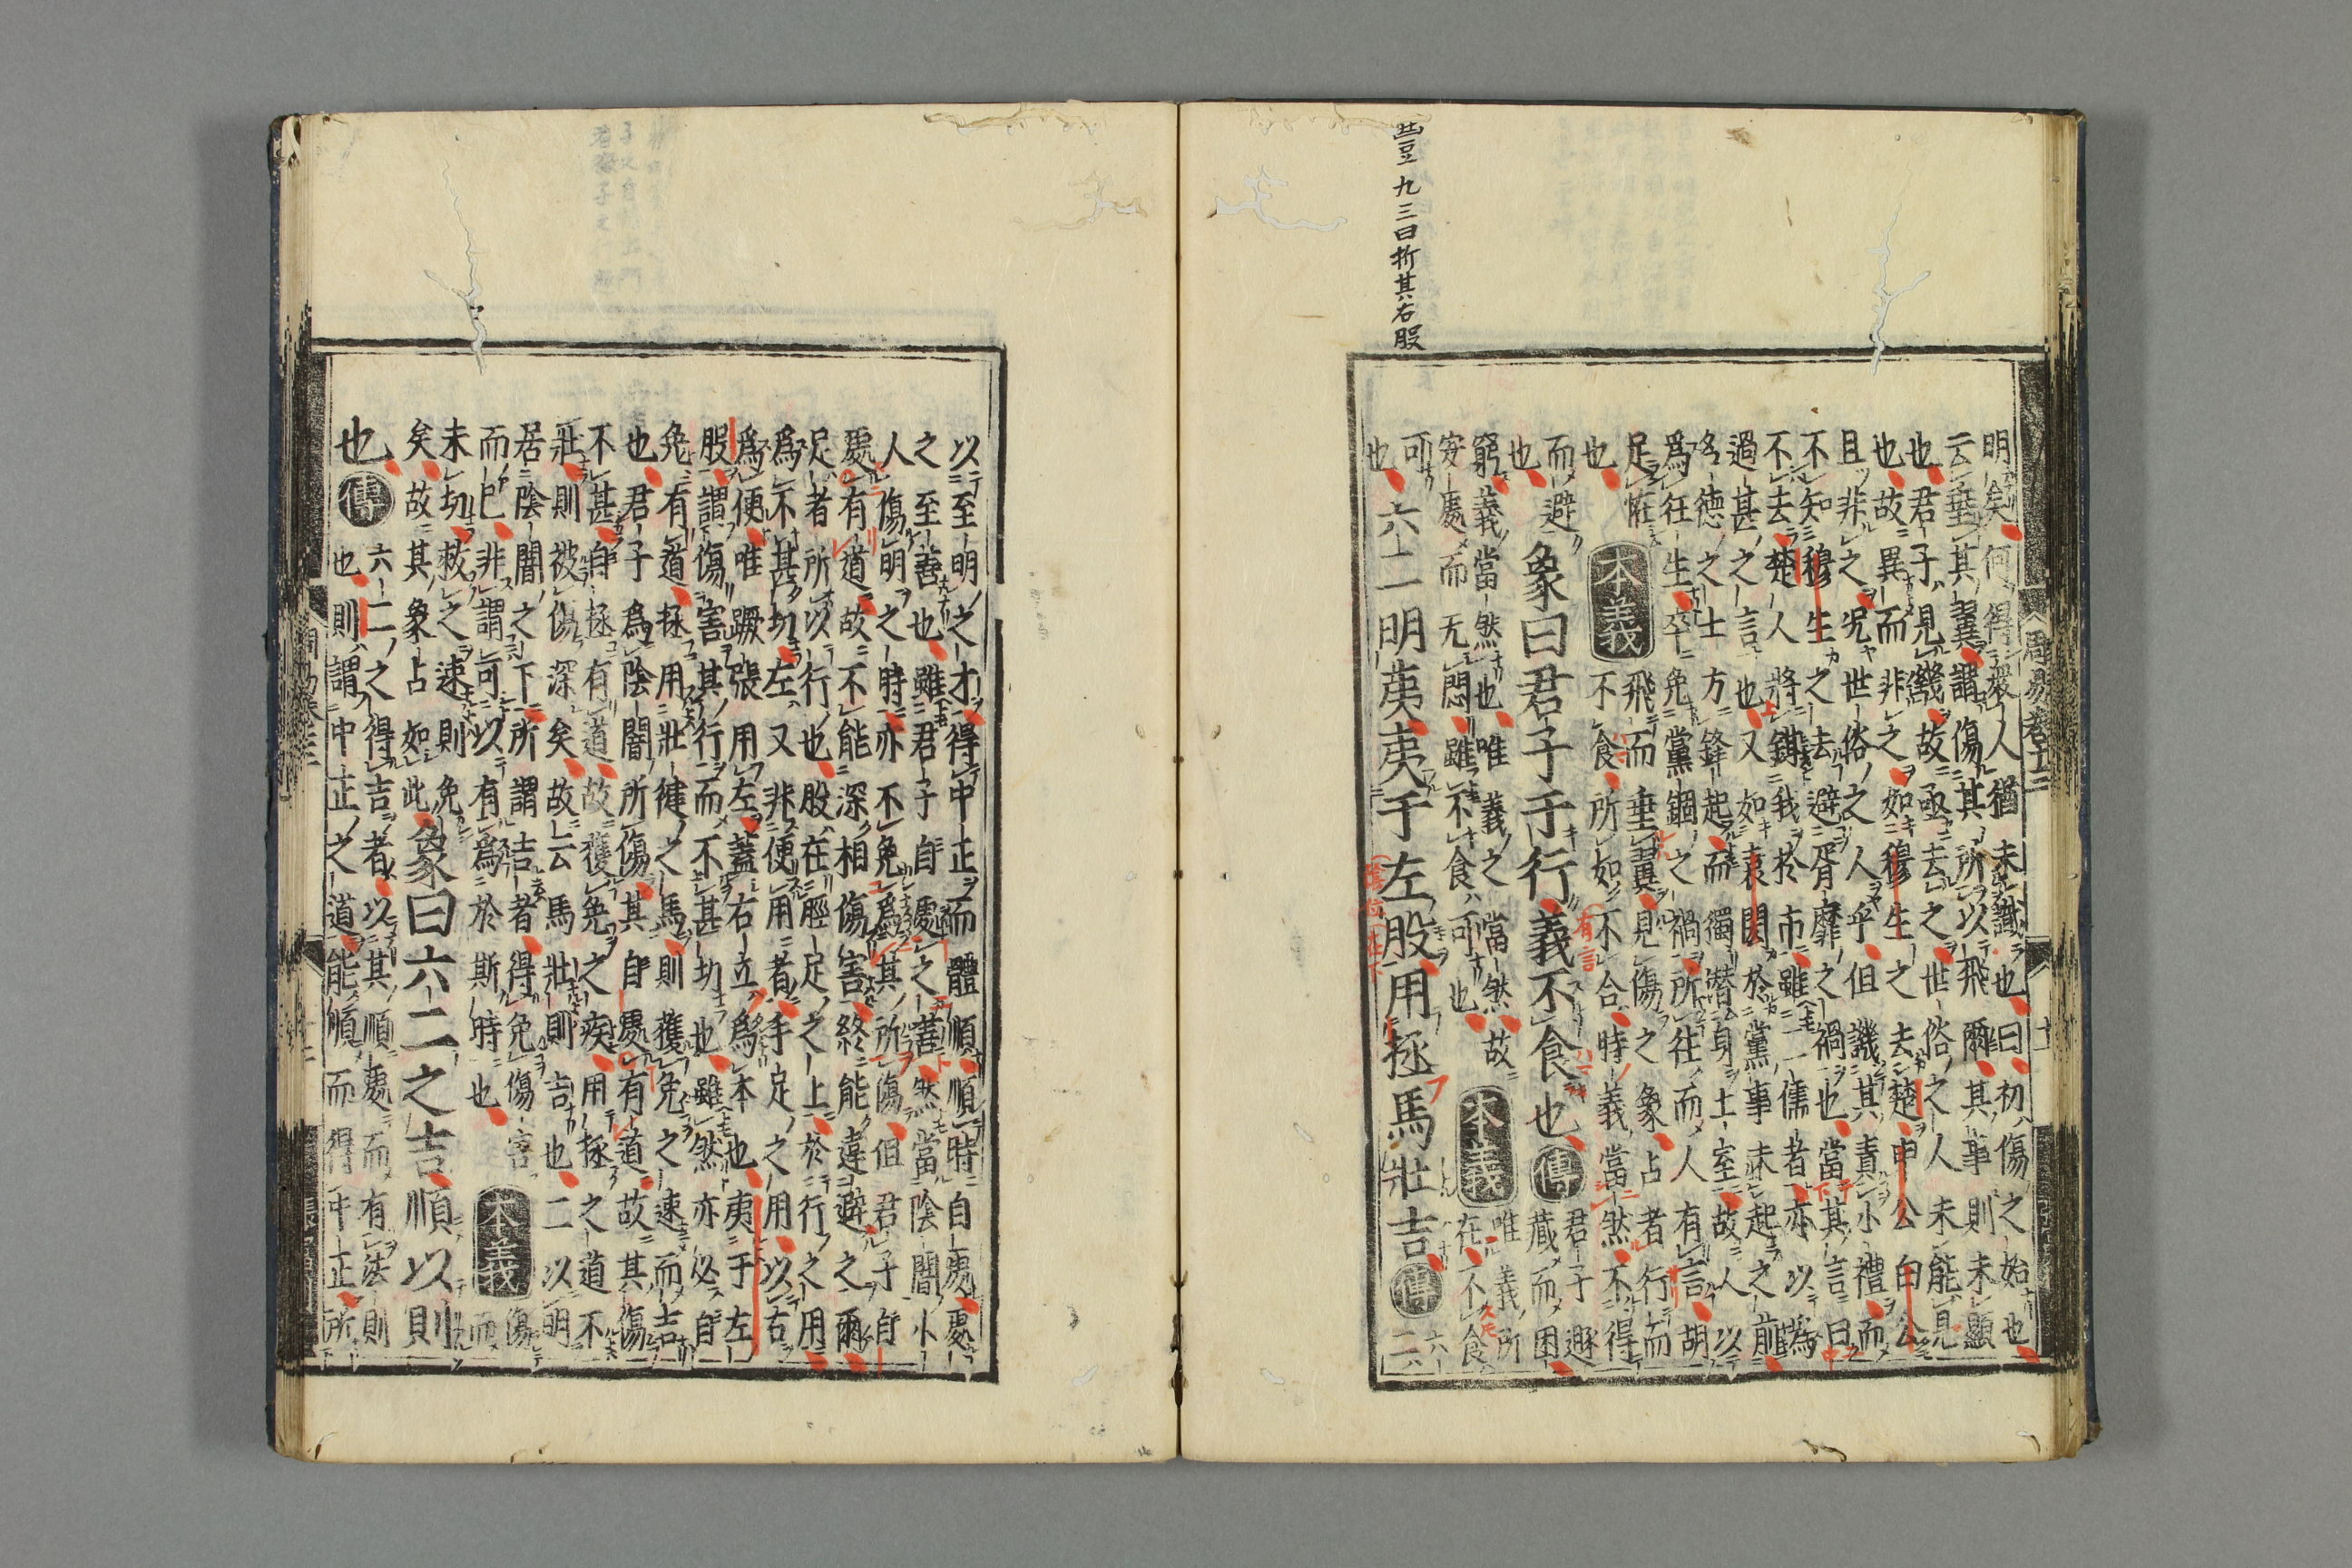 豐九三曰折其右股
周易卷十二
明矣何得衆人猶未識也曰初傷之始也
云垂其翼謂傷其所以飛爾其事則未顯
也君子見幾故亟去之世俗之人未能見
也故異而非之如穆生之去楚申公白公
且非之況世俗之人乎但譏其責小禮而
不知穆生之去避胥靡之禍也當其言曰
不去楚人將鉗我於市雖二儒者亦以爲
過甚之言也又如袁閎於黨事未起之前
名德之士方鋒起而獨潛身土室故人以
爲狂生卒免黨錮之禍所往而人有言胡
足恠
也
本義
飛而垂翼見傷之象占者行而
不食所如不合時義當然不得
有言
而避
也
象曰君子于行義不食也
傳
君子遯
藏而困
窮義當然也唯義之當然故
安處而无悶雖不食可也
本義
唯義所
在不食
可
也
六二明夷夷于左股用拯馬壯吉
傳
六
二
以至明之才得中正而體順順時自處處
之至善也雖君子自處之善然當陰闇小
人傷明之時亦不免爲其所傷但君子自
處有道故不能深相傷害終能違避之爾
足者所以行也股在脛足之上於行之用
爲不甚切左又非便用者手足之用以右
爲便唯蹶張用左蓋右立爲本也夷于左
股謂傷害其行而不甚切也雖然亦必自
免有道拯用壯健之馬則獲免之速而吉
也君子爲陰闇所傷其自處有道故其傷
不甚自拯有道故獲免之疾用拯之道不
壯則被傷深矣故云馬壯則吉也二以明
居陰闇之下所謂吉者得免傷害
而已非謂可以有爲於斯時也
本義
傷
而
未切救之速則免
矣故其象占如此
象曰六二之吉順以則
也
傳
六二之得吉者以其順處而有法則
也則謂中正之道能順而得中正所